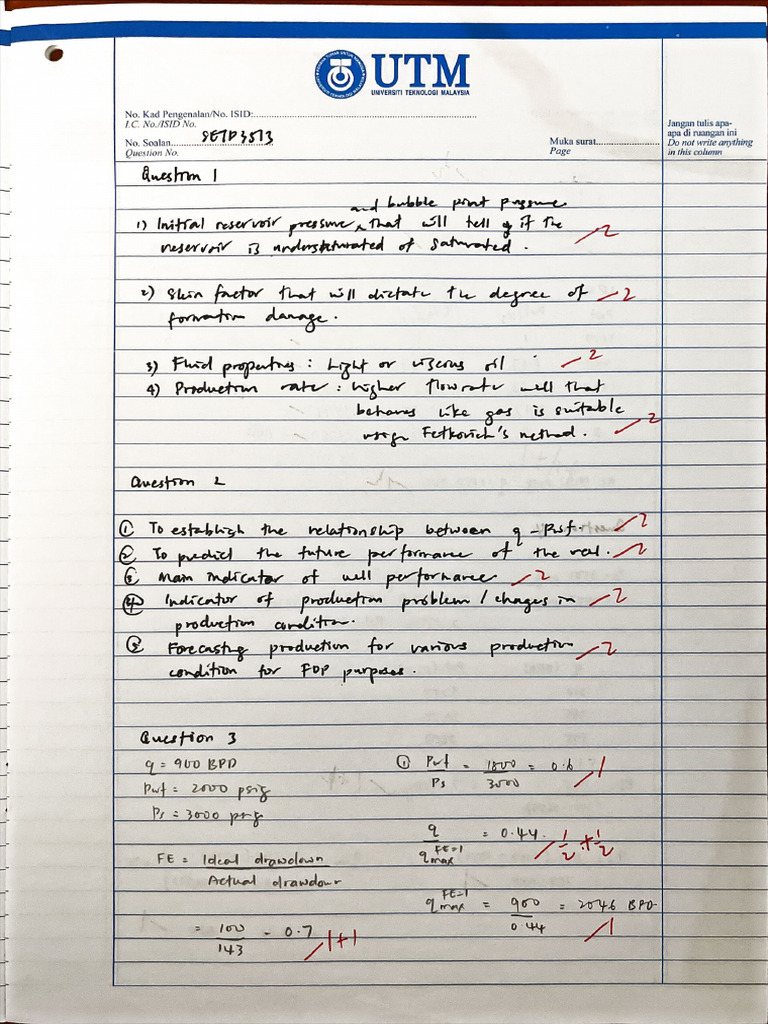 UTM
UNIVERSITI TEKNOLOGI MALAYSIA
No. Kad Pengenalan/No. ISID:
I.C. No./ISID No.
No. Soalan
Question No.
SETP3513
Muka surat
Page
Jangan tulis apa-
apa di ruangan ini
Do not write anything
in this column
Question 1
and bubble point pressure
1) Initial reservoir pressure ^ that will tell if the
reservoir is undersaturated of saturated.
2
2) Skin factor that will dictate the degree of
formation damage.
2
3) Fluid properties : Light or viscous oil
2
4) Production rate : higher flowrate well that
behaves like gas is suitable
usign Fetkovich's method.
2
Question 2
① To establish the relationship between q - Pwf.
2
② To predict the future performance of the well.
2
③ Main indicator of well performance
2
④ Indicator of production problem / chages in
production condition.
2
⑤ Forecasting production for various production
condition for FDP purposes.
2
Question 3
q = 900 BPD
Pwf = 2000 psig
Ps = 3000 psig
FE = Ideal drawdown / Actual drawdown
= 100 / 143 = 0.7
1+1
① Pwf / Ps = 1800 / 3000 = 0.6
1
q / qmax FE=1 = 0.44
1/2 + 1/2
qmax FE=1 = 900 / 0.44 = 2046 BPD
1